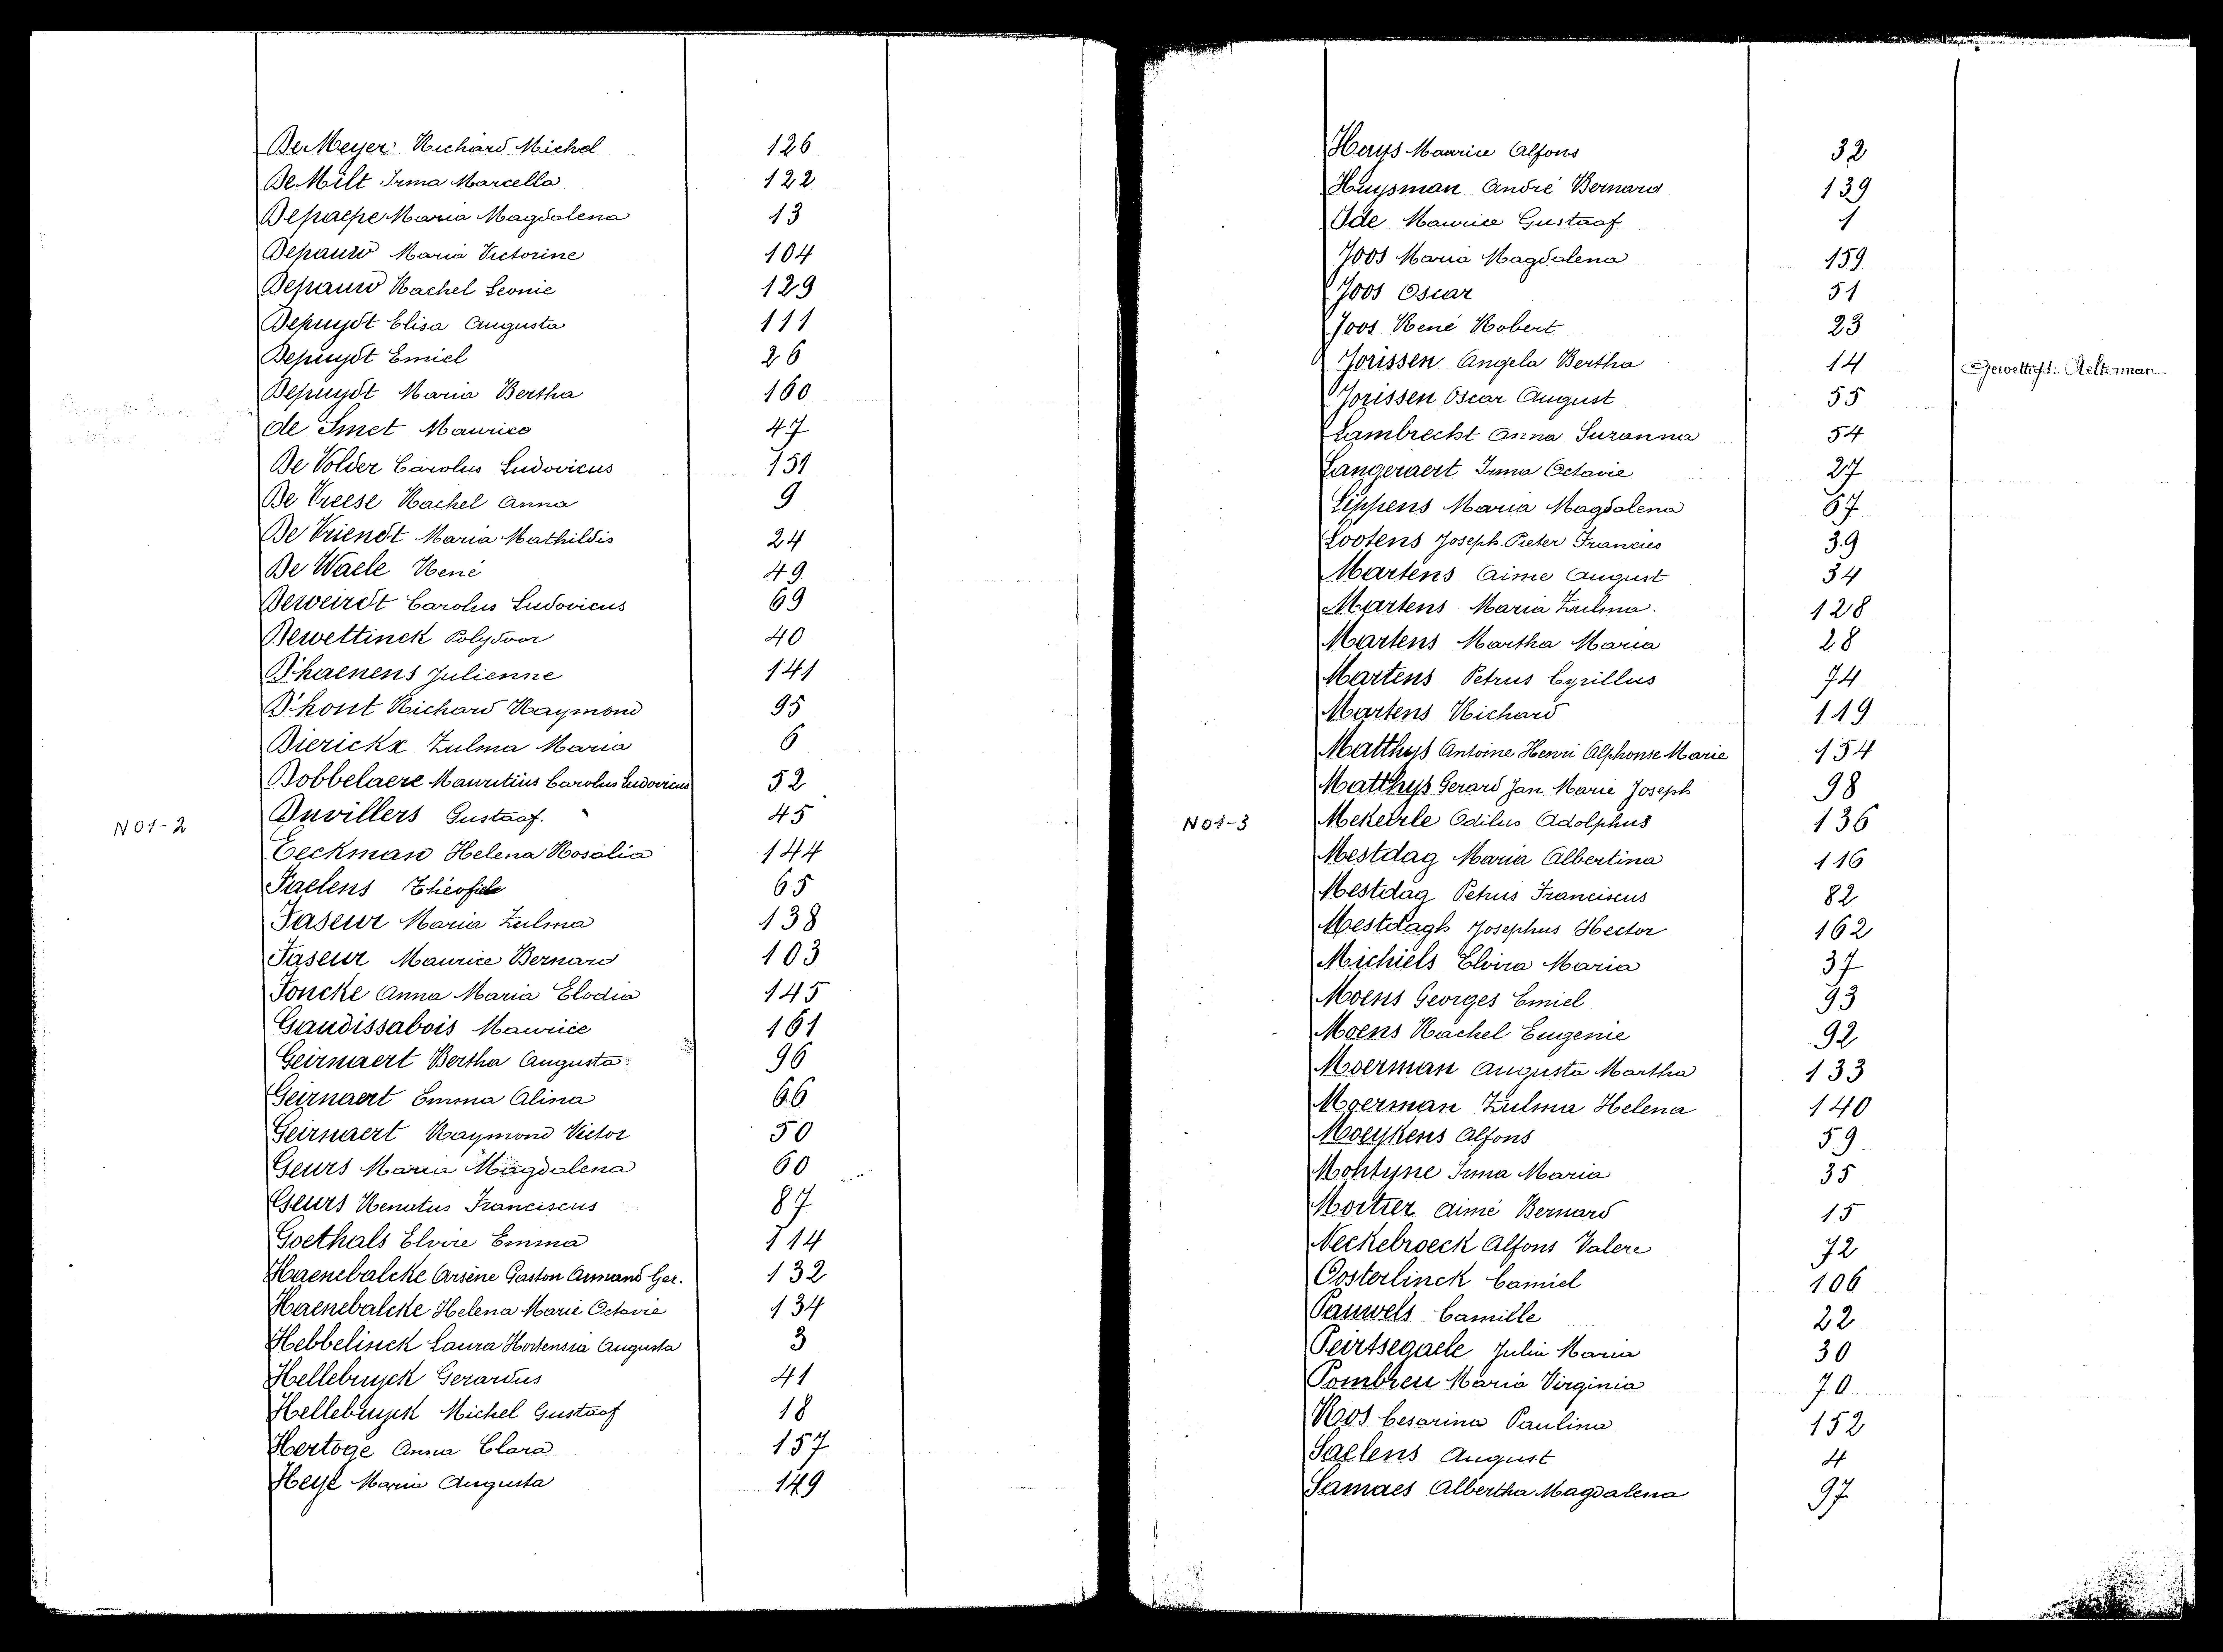 De Meyer Richard Michel 126
De Milt Irma Marcella 122
Depaepe Maria Magdalena 13
Depauw Maria Victorine 104
Depauw Rachel Leonie 129
Depuydt Elisa Augusta 111
Depuydt Emiel 26
Depuydt Maria Bertha 160
de Smet Maurice 47
De Volder Carolus Ludovicus 151
De Vreese Rachel Anna 9
De Vriendt Maria Mathildis 24
De Waele René 49
Deweirdt Carolus Ludovicus 69
Dewettinck Polydoor 40
D'haenens Julienne 141
D'hont Richard Raymond 95
Dierickx Zulma Maria 6
Dobbelaere Mauritius Carolus Ludovicus 52
N01-2 Duvillers Gustaaf. 45
Eeckman Helena Rosalia 144
Faelens Théofiele 65
Faseur Maria Zulma 138
Faseur Maurice Bernard 103
Foncke Anna Maria Elodia 145
Gaudissabois Maurice 161
Geirnaert Bertha Augusta 96
Geirnaert Emma Alina 66
Geirnaert Raymond Victor 50
Geurs Maria Magdalena 60
Geurs Renatus Franciscus 87
Goethals Elvire Emma 114
Haenebalcke Arsène Gaston Armand Ger. 132
Haenebalcke Helena Marie Octavie 134
Hebbelinck Laura Hortensia Augusta 3
Hellebuyck Gerardus 41
Hellebuyck Michel Gustaaf 18
Hertoge Anna Clara 157
Heye Maria Augusta 149
Huys Maurice Alfons 32
Huysman André Bernard 139
Ide Maurice Gustaaf 1
Joos Maria Magdalena 159
Joos Oscar 51
Joos René Robert 23
Jorissen Angela Bertha 14 Gewettigd: Aelterman
Jorissen Oscar August 55
Lambrecht Anna Suzanna 54
Langeraert Irma Octavie 27
Lippens Maria Magdalena 67
Lootens Joseph Pieter Francies 39
Martens Aime August 34
Martens Maria Zulma. 128
Martens Martha Maria 28
Martens Petrus Cyrillus 74
Martens Richard 119
Matthys Antoine Henri Alphonse Marie 154
Matthys Gerard Jan Marie Joseph 98
N01-3 Mekeirle Odilus Adolphus 136
Mestdag Maria Albertina 116
Mestdag Petrus Franciscus 82
Mestdagh Josephus Hector 162
Michiels Elvira Maria 37
Moens Georges Emiel 93
Moens Rachel Eugenie 92
Moerman Augusta Martha 133
Moerman Zulma Helena 140
Moeykens Alfons 59
Montyne Irma Maria 35
Mortier Aimé Bernard 15
Neckebroeck Alfons Valere 72
Oosterlinck Camiel 106
Pauwels Camille 22
Peirtsegaele Julia Maria 30
Pombreu Maria Virginia 70
Ros Cesarina Paulina 152
Saelens August 4
Samaes Albertha Magdalena 97